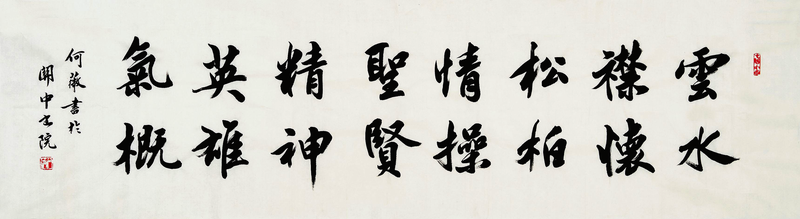 雲水
襟懷
松柏
情操
聖賢
精神
英雄
氣概
何薇書於
關中書院